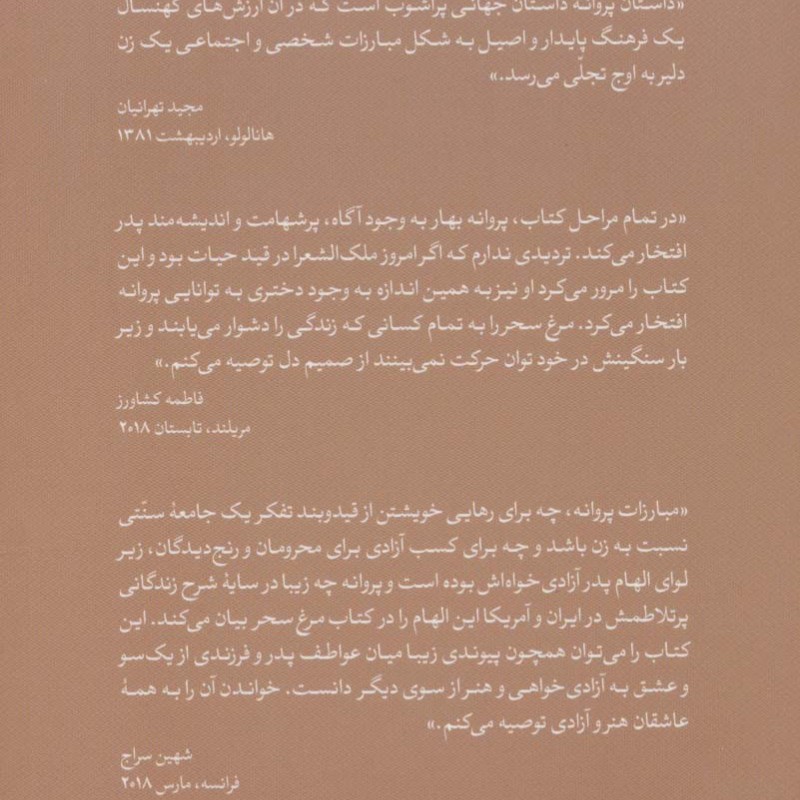 «داستان پروانه داستان جهانی پرآشوب است که در آن ارزش‌های کهنسال
یک فرهنگ پایدار و اصیل به شکل مبارزات شخصی و اجتماعی یک زن
دلیر به اوج تجلّی می‌رسد.»
مجید تهرانیان
هانالولو، اردیبهشت ۱۳۸۱
«در تمام مراحل کتاب، پروانه بهار به وجود آگاه، پرشهامت و اندیشه‌مند پدر
افتخار می‌کند. تردیدی ندارم که اگر امروز ملک‌الشعرا در قید حیات بود و این
کتاب را مرور می‌کرد او نیز به همین اندازه به وجود دختری به توانایی پروانه
افتخار می‌کرد. مرغ سحر را به تمام کسانی که زندگی را دشوار می‌یابند و زیر
بار سنگینش در خود توان حرکت نمی‌بینند از صمیم دل توصیه می‌کنم.»
فاطمه کشاورز
مریلند، تابستان ۲۰۱۸
«مبارزات پروانه، چه برای رهایی خویشتن از قیدوبند تفکر یک جامعهٔ سنّتی
نسبت به زن باشد و چه برای کسب آزادی برای محرومان و رنج‌دیدگان، زیر
لوای الهام پدر آزادی خواه‌اش بوده است و پروانه چه زیبا در سایهٔ شرح زندگانی
پرتلاطمش در ایران و آمریکا این الهام را در کتاب مرغ سحر بیان می‌کند. این
کتاب را می‌توان همچون پیوندی زیبا میان عواطف پدر و فرزندی از یک‌سو
و عشق به آزادی‌خواهی و هنر از سوی دیگر دانست. خواندن آن را به همهٔ
عاشقان هنر و آزادی توصیه می‌کنم.»
شهین سراج
فرانسه، مارس ۲۰۱۸